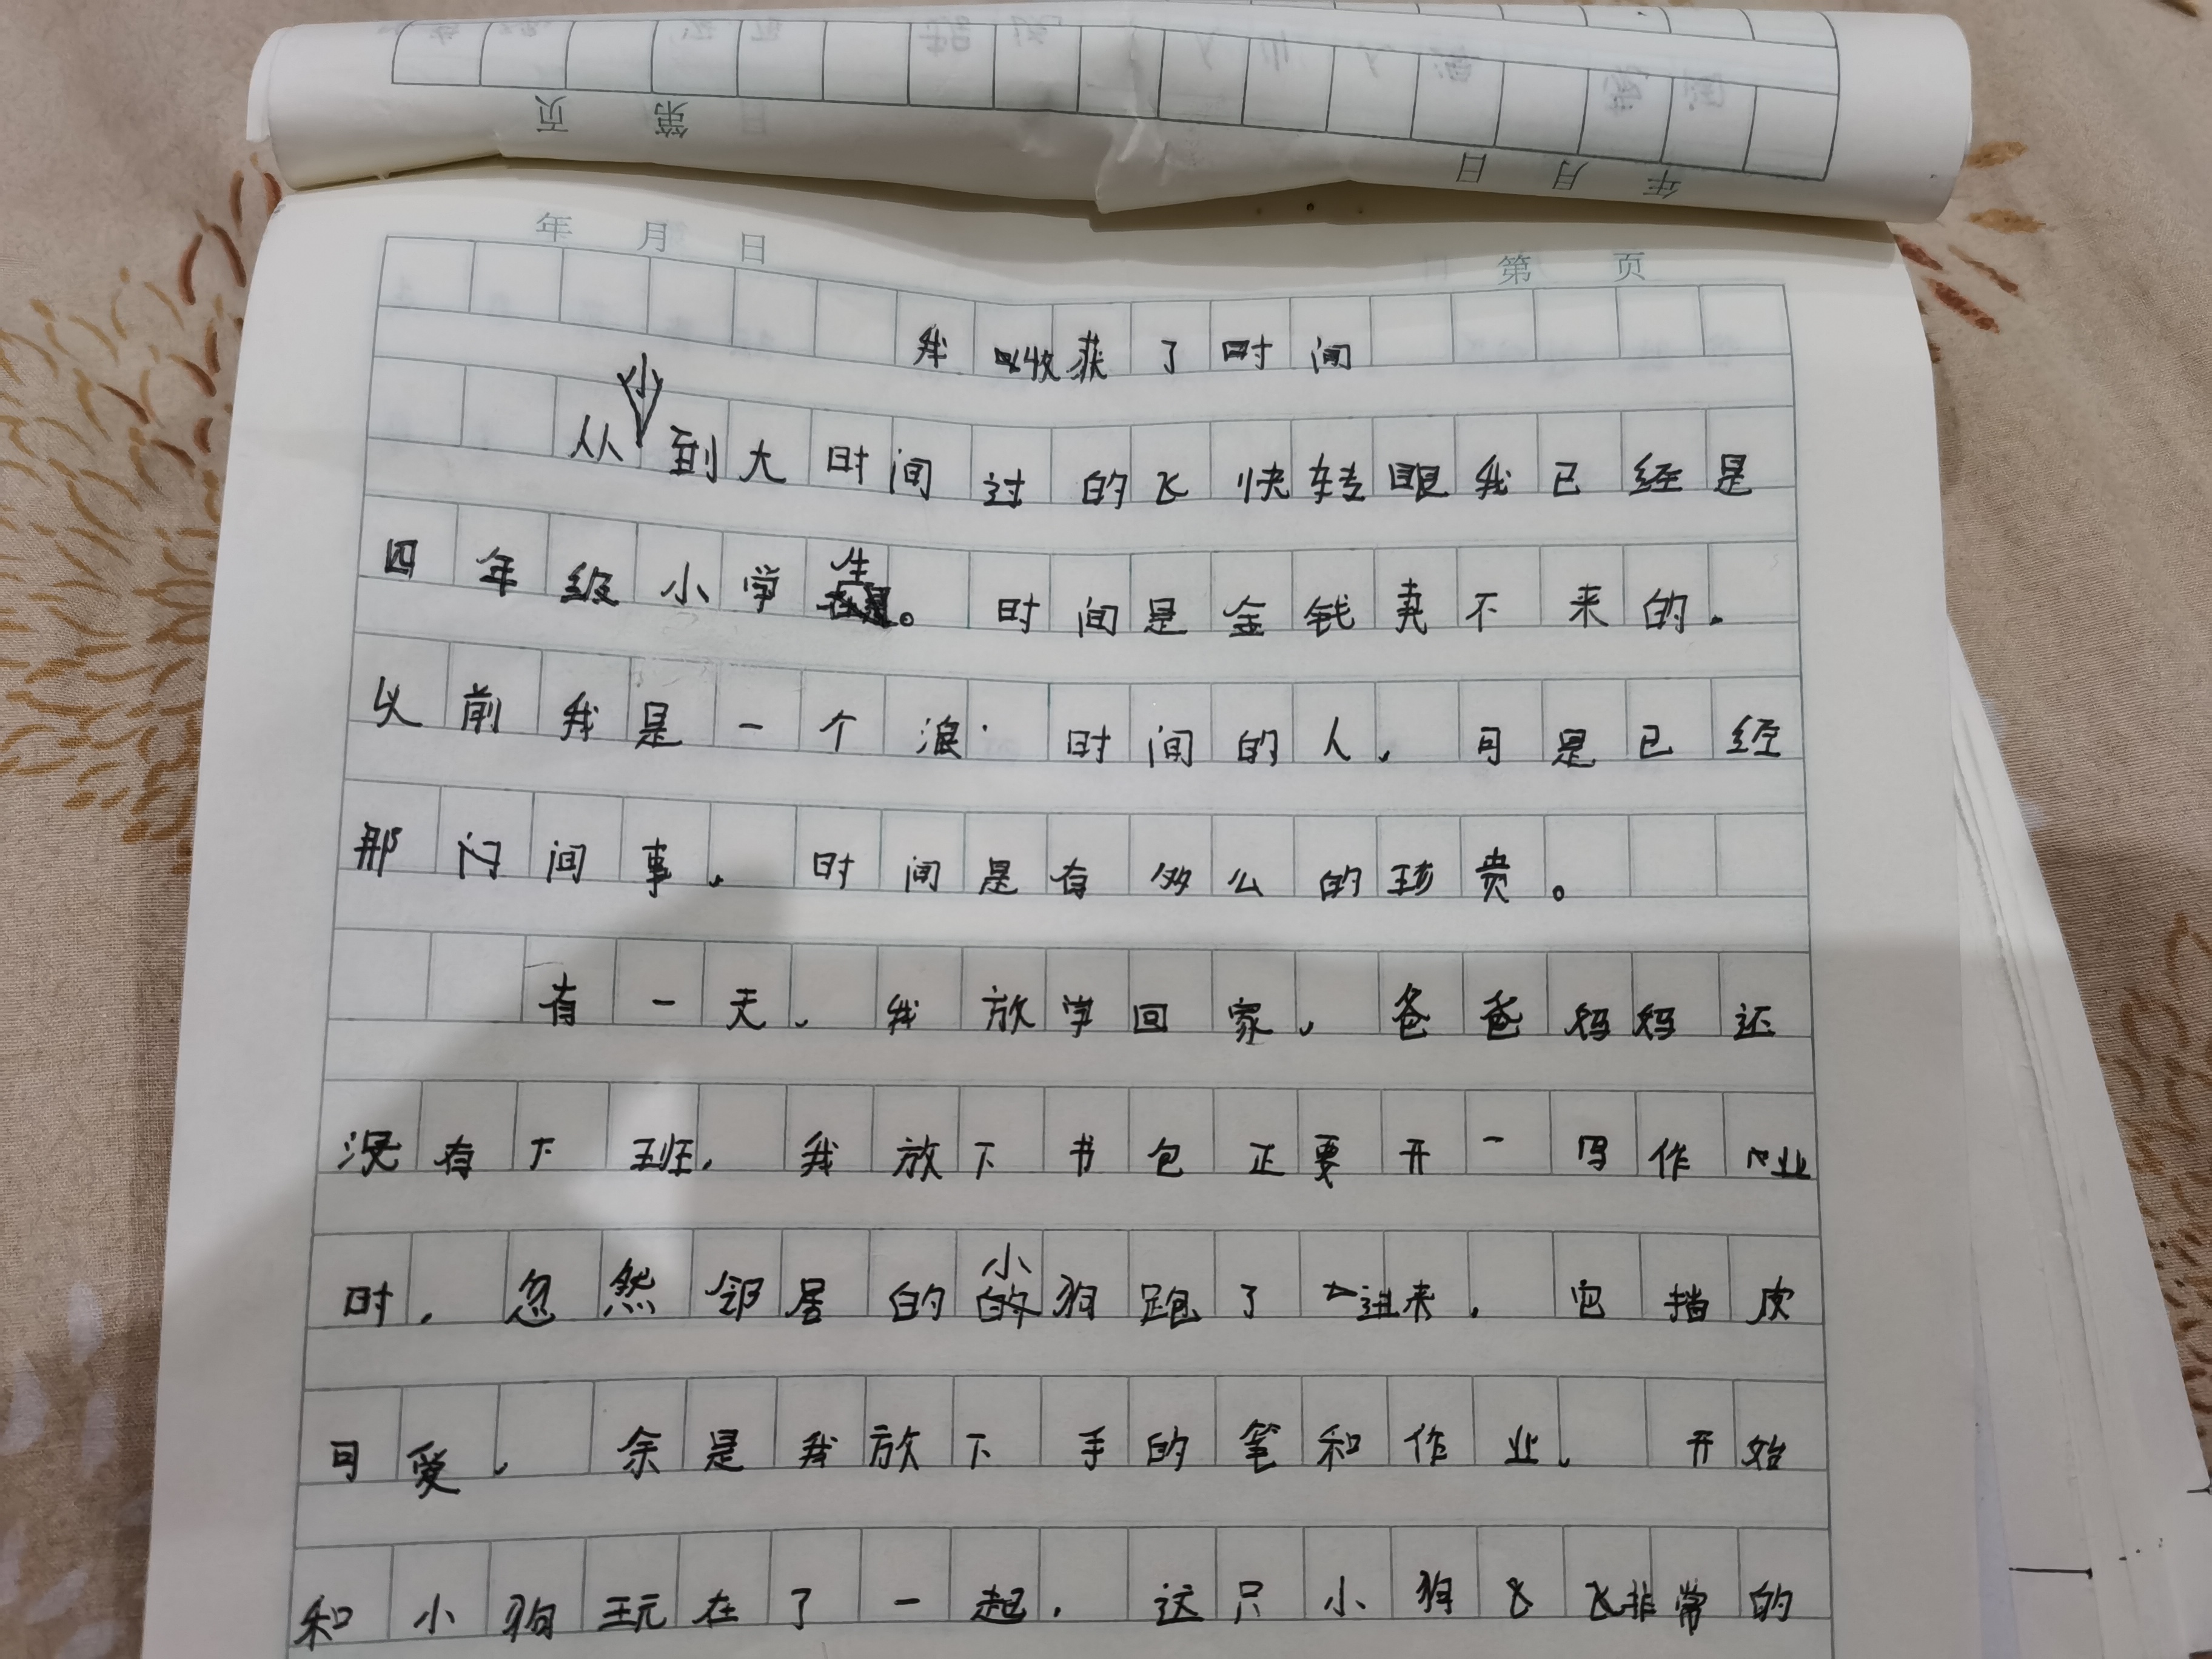 年 月 日
第 页
我收获了时间
从小到大时间过的飞快转眼我已经是
四年级小学生。时间是金钱卖不来的.
以前我是一个浪 时间的人,可是已经
那门间事,时间是有多么的珍贵。
有一天,我放学回家,爸爸妈妈还
没有下班,我放下书包正要开一写作业
时,忽然邻居的小狗跑了进来,它 皮
可爱,余是我放下手的笔和作业,开始
和小狗玩在了一起,这只小狗 非常的